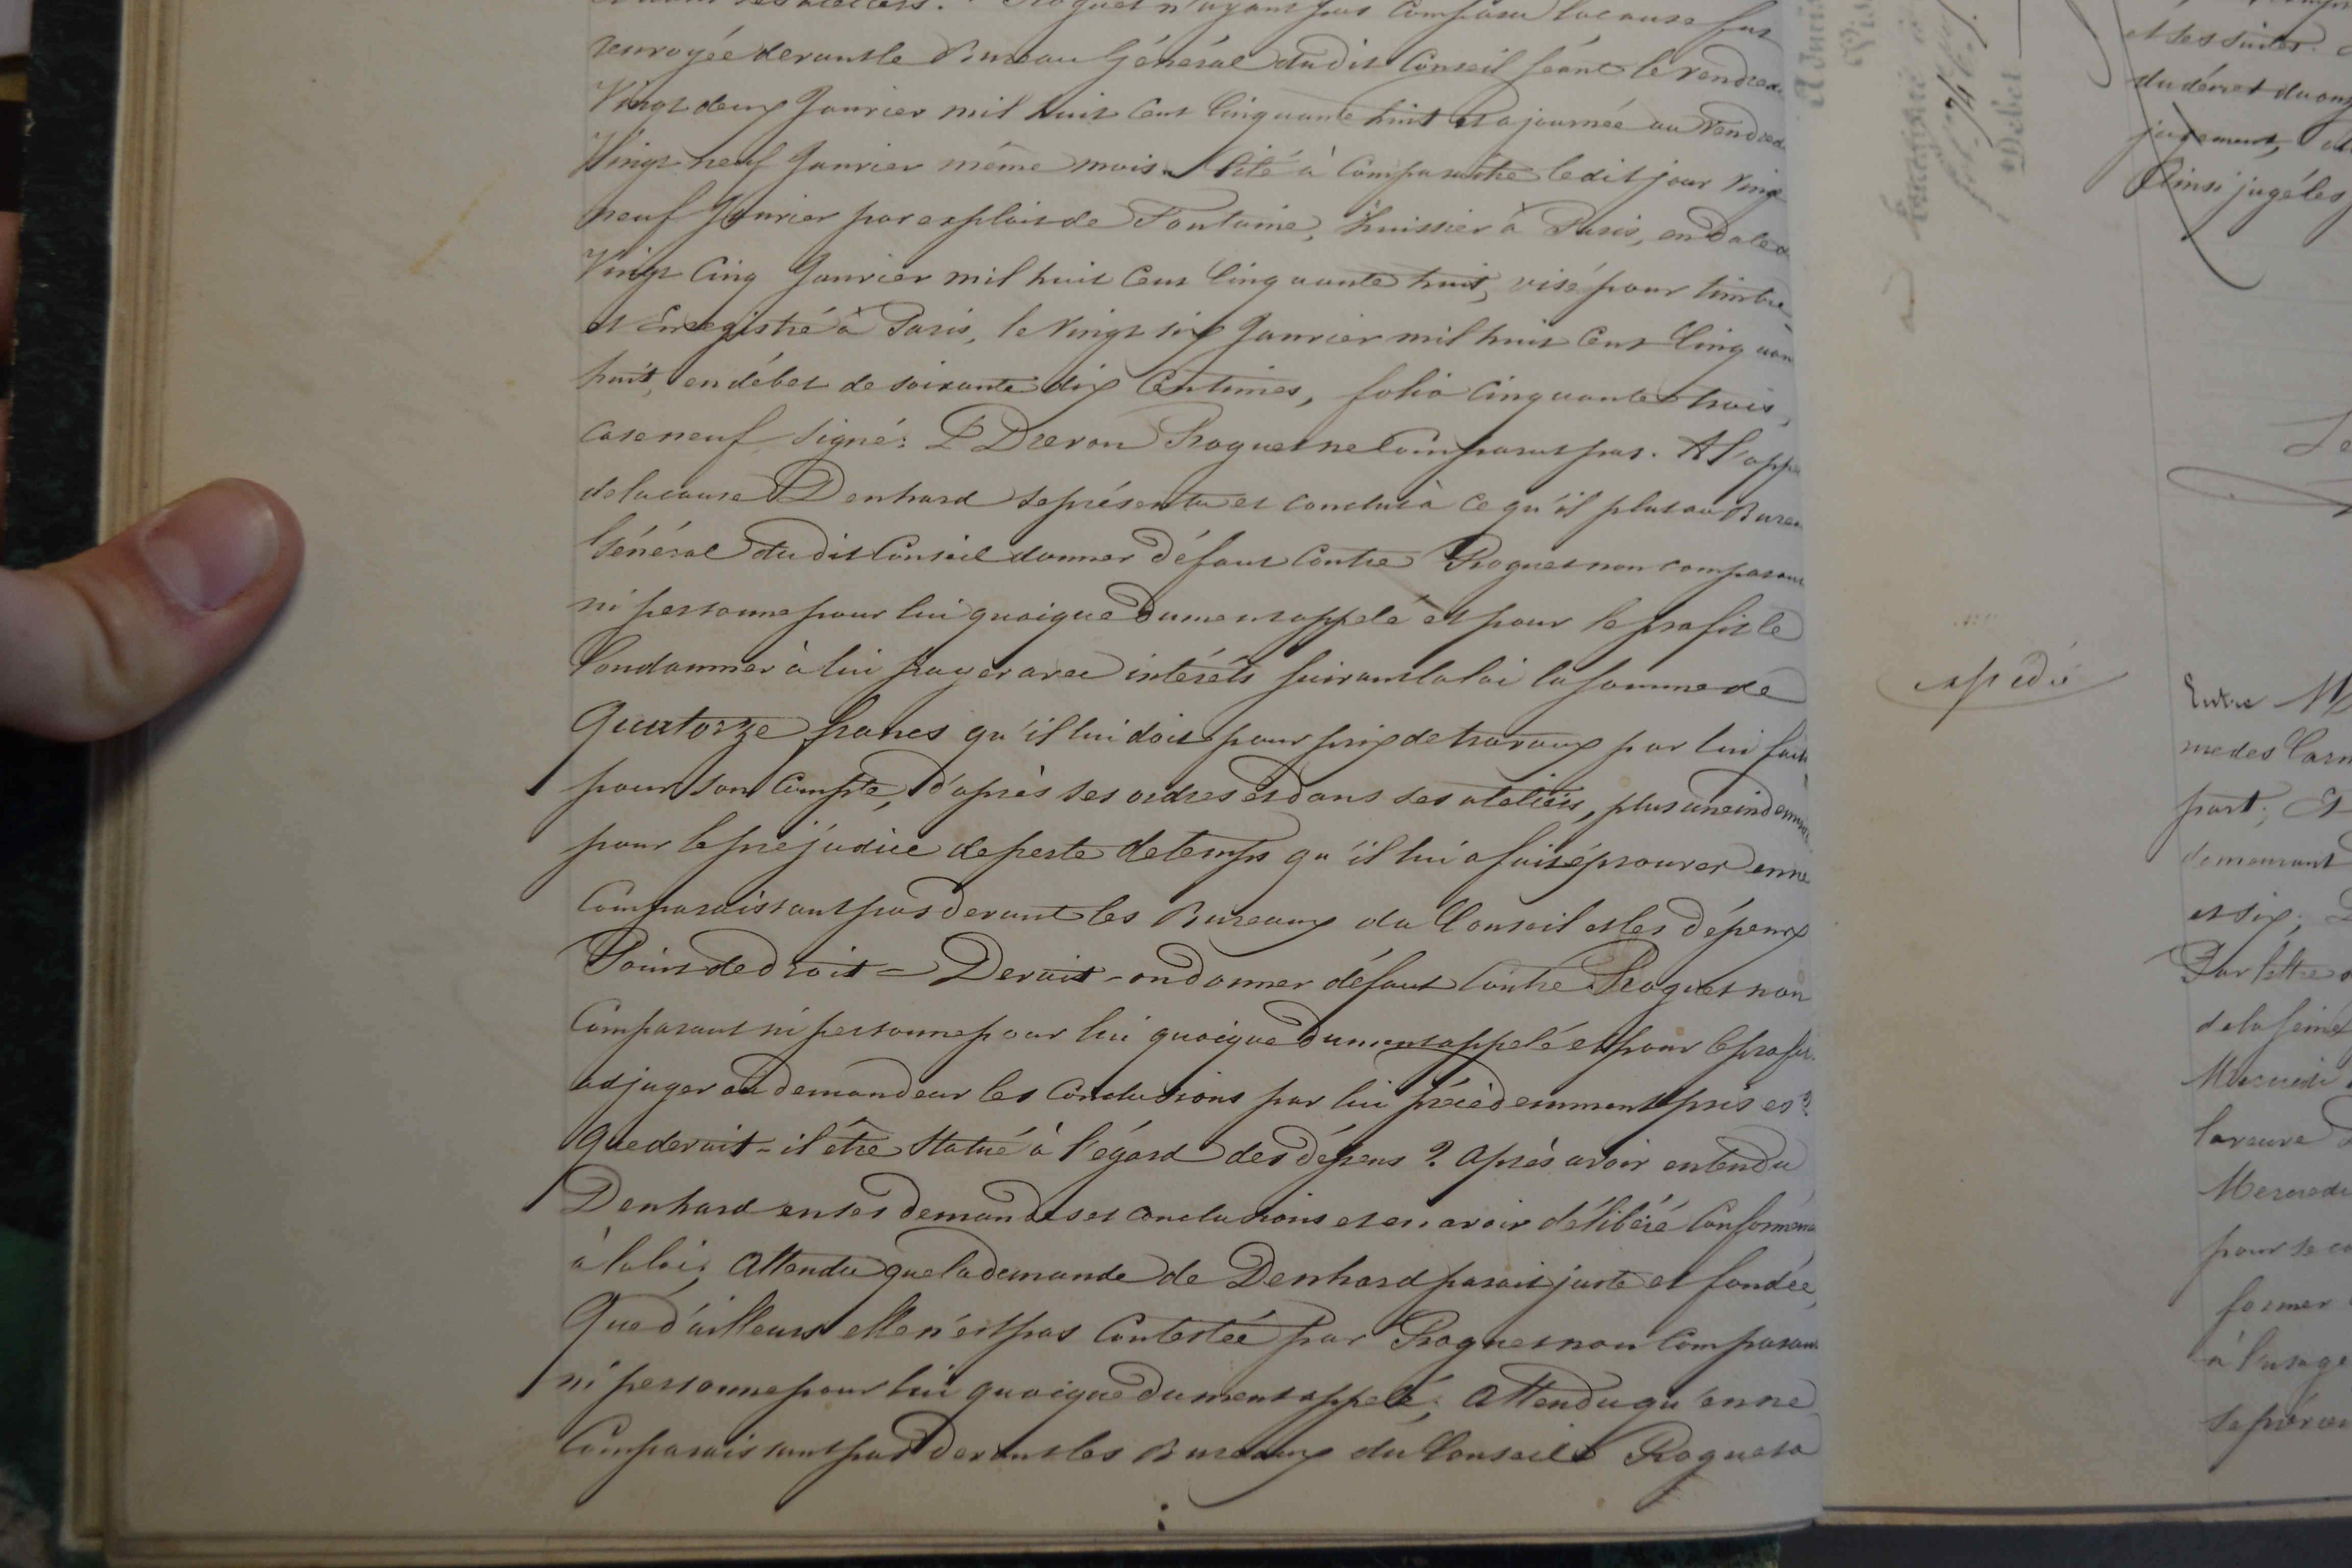 ses ateliers. Roguet n'ayant pas comparu la cause fut
renvoyée devant le Bureau Général dudit Conseil séant le vendredi
Vingt deux Janvier mil huit cent cinquante huit et ajournée au Vendredi
Vingt neuf Janvier même mois. Cité à comparaître ledit jour Vingt
neuf Janvier par exploit de Fontaine, huissier à Paris, en date du
Vingt cinq Janvier mil huit cent cinquante huit, visé pour timbre
et Enregistré à Paris, le Vingt six Janvier mil huit cent cinquan
huit, en débet de soixante dix centimes, folio cinquante trois,
case neuf, signé: Roguet ne comparut pas. A l'appel
de la cause Denhard se présenta et conclut à ce qu'il plut au Bureau
Général dudit Conseil donner défaut contre Roguet non comparant
ni personne pour lui quoique dument appelé et pour le profit le
Condamner à lui payer avec intérêts suivant la loi la somme de
Quatorze francs qu'il lui doit pour prix de travaux par lui faits
pour son compte, d'après ses ordres et dans ses ateliers, plus une indemnité
pour le préjudice de perte de temps qu'il lui a fait éprouver en ne
Comparaissant pas devant les Bureaux du Conseil et les dépens
Point de droit = Devait-on donner défaut contre Roguet non
Comparant ni personne pour lui quoique dument appelé et pour le profit
adjuger au demandeur les conclusions par lui précédemment prises?
Que devait-il être statué à l'égard des dépens? Après avoir entendu
Denhard en ses demandes et conclusions et en avoir délibéré conformément
à la loi; Attendu que la demande de Denhard parait juste et fondée,
Que d'ailleurs elle n'est pas contestée par Roguet non comparant
ni personne pour lui quoique dument appelé; Attendu qu'en ne
Comparaissant pas devant les Bureaux du Conseil Roguet a
74
Débet
et ses suites.
du décret du onz
jugement,
Ainsi jugé les
expédié
Entre M
part; Et
demeurant
et six;
Par lettre
de la Seine
Mercredi
Mercredi
pour se co
former
à l'usage